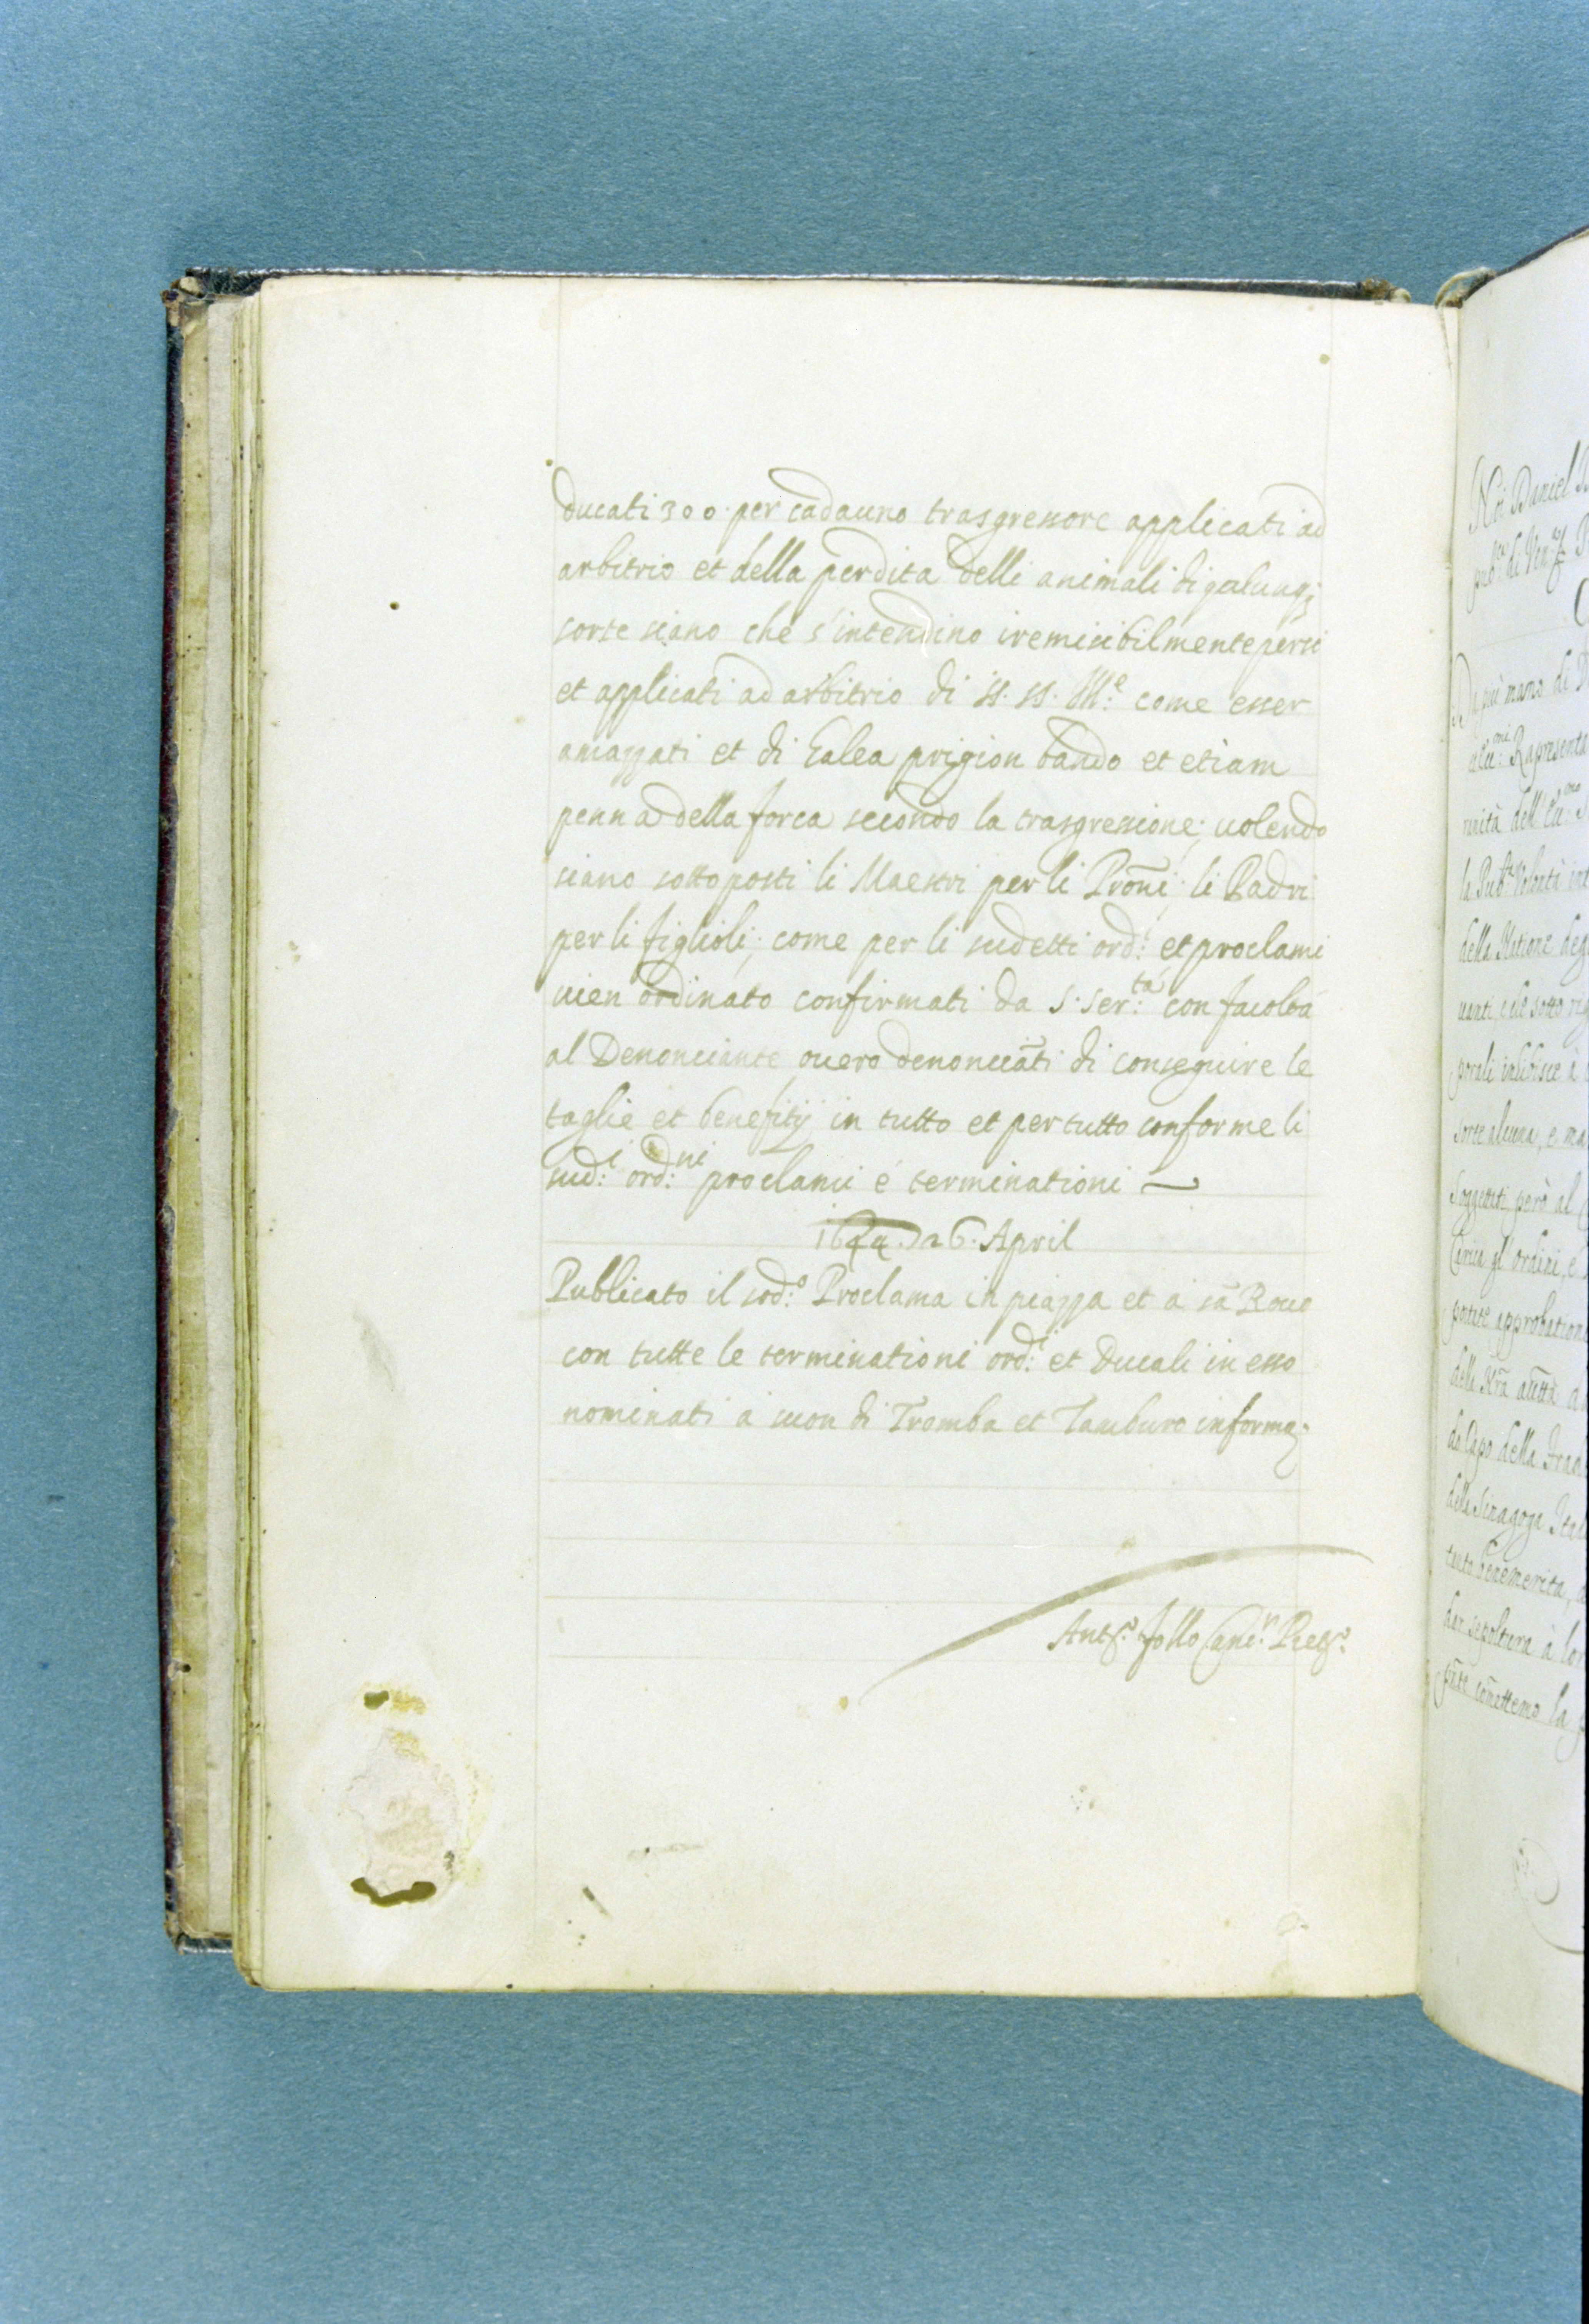 ducati 300. per cadauno trasgressore applicati ad
arbitrio et della perdita delli animali di qualunq;
sorte siano che s'intendino iremisibilmente persi
et applicati ad arbitrio di SS. SS. Ill:e come esser
amazzati et di Galea prigion bando et etiam
penna della forca secondo la trasgressione; uolendo
siano sottoposti li Maestri per li Prōni; li Padri
per li figlioli; come per li sudetti ord:i et proclami
uien ordinato confirmati da S. Ser:tà con facoltà
al Denonciante ouero denonciāti di conseguire le
taglie et benefitij in tutto et per tutto conforme li
sud:i ord:ni proclami è terminationi
26. April
Publicato il sod:o Proclama in piazza et à sā Roco
con tutte le terminationi ord:i et Ducali in esso
nominati à suon di Tromba et Tamburo in forma;
Ant.o follo Canc.r Preg.o
Noi Daniel
di Ven.a
mano di
Rapresenta
dell'
la Pub.ca Volontà
della Natione
sotto
inhibisce à
sorte alcuna, e ma
Soggetti però al
Carica gl'ordini, e
approbation
della Nrā autt.à
da Capo della
della Sinagoga Ital
benemerita,
dar sepoltura à lor
pn̄te com̄ettemo la